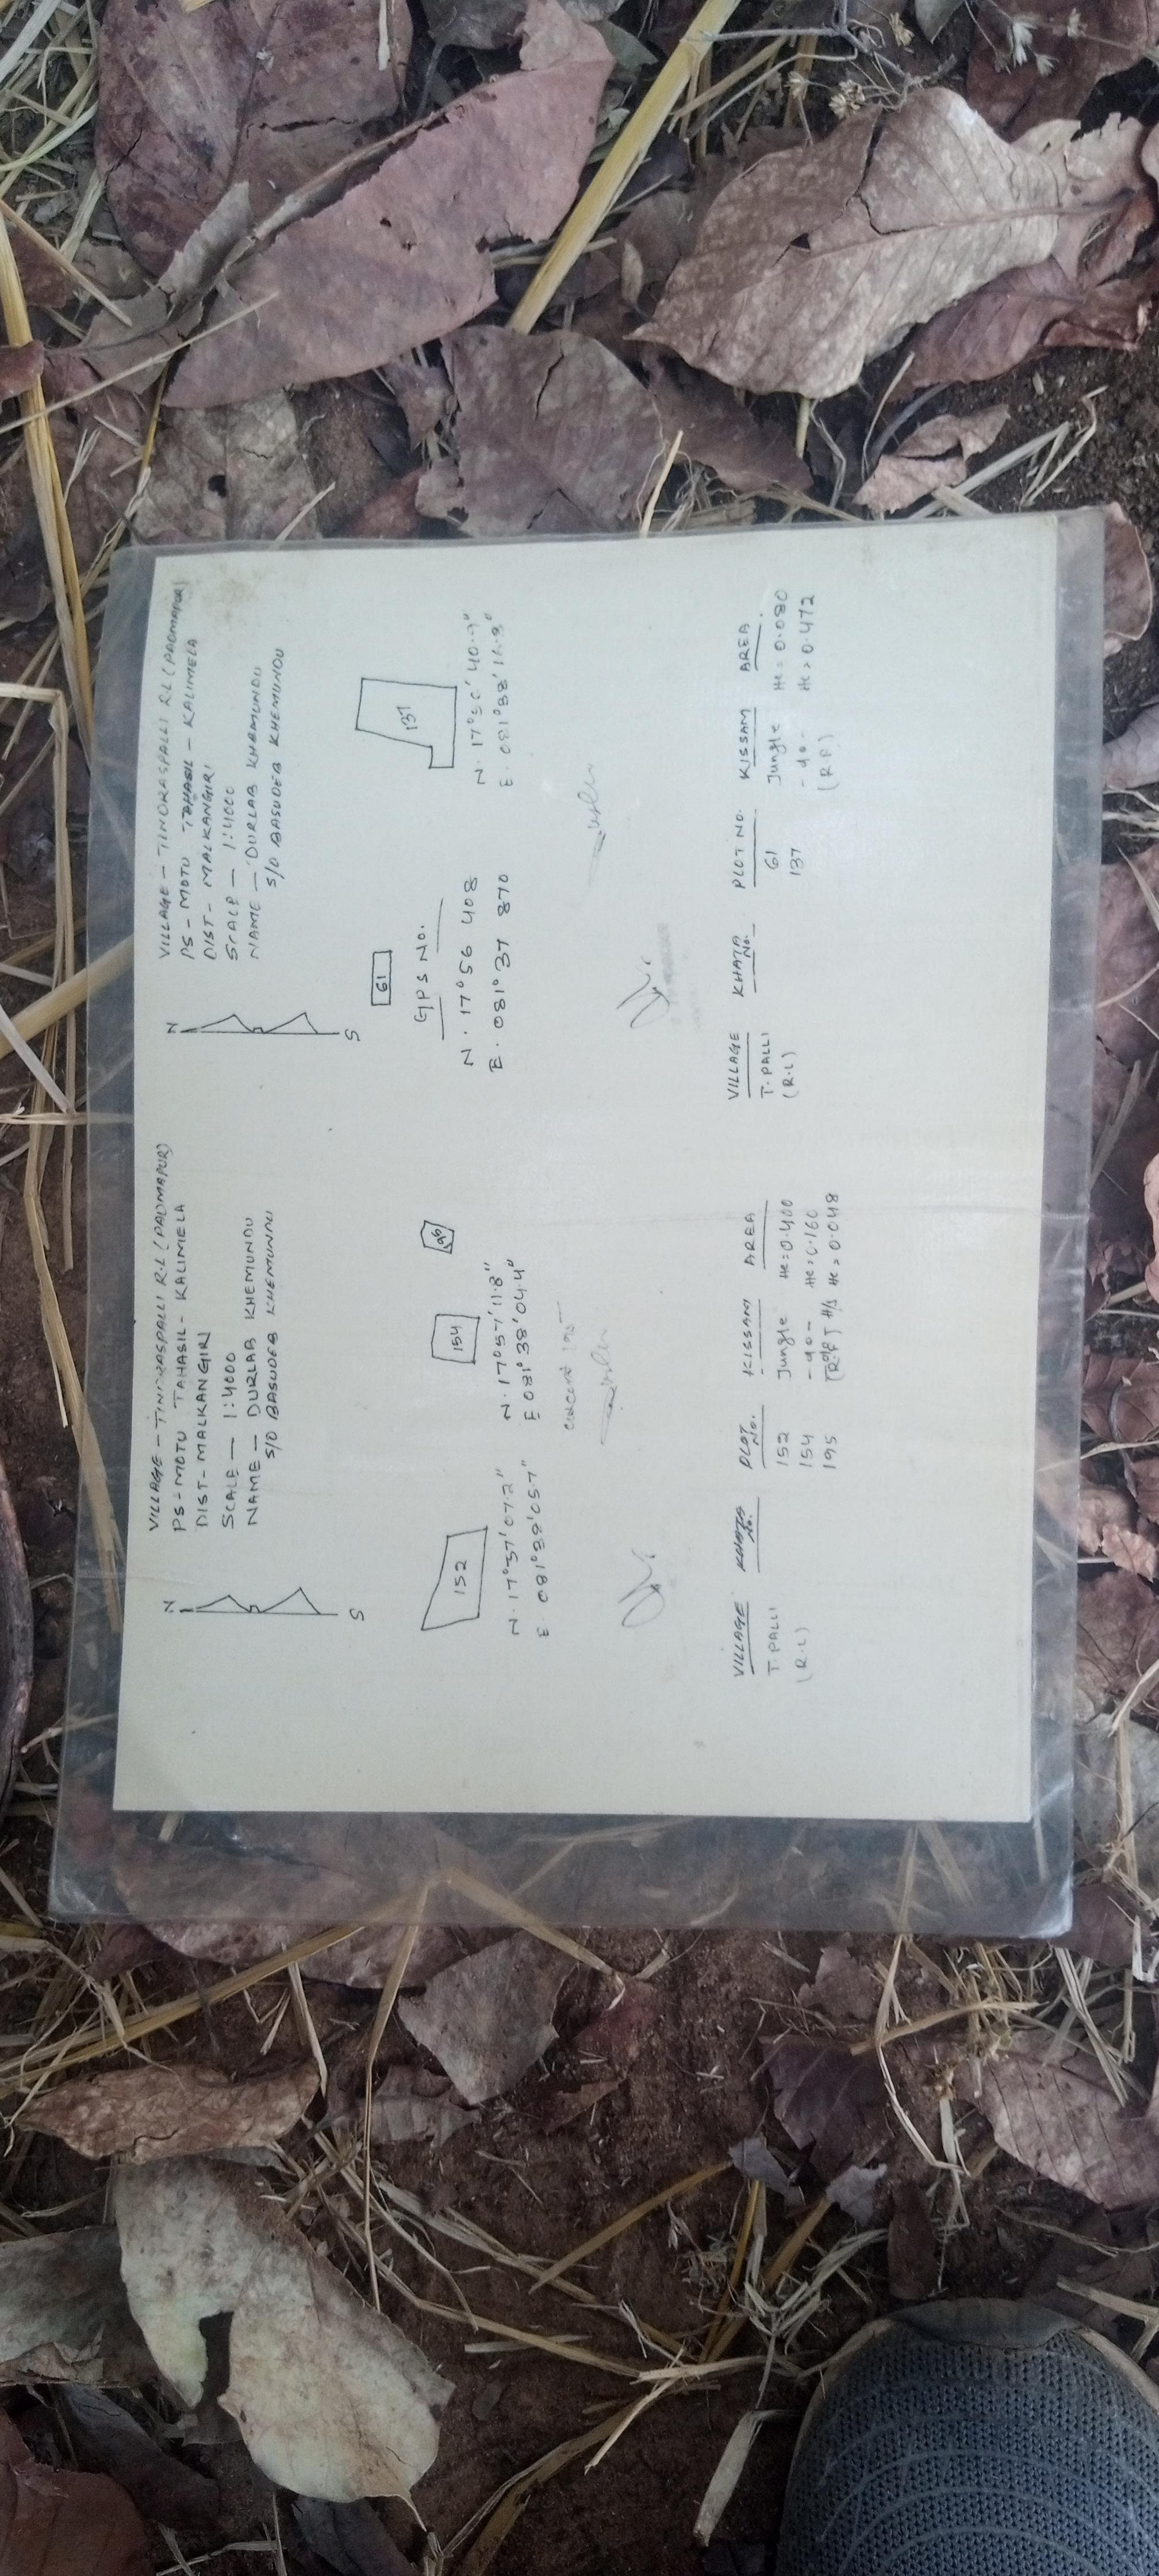 N
S
VILLAGE - TINORASPALLI R.L (PADMAPUR)
PS - MOTU TAHASIL - KALIMELA
DIST - MALKANGIRI
SCALE - 1:4000
NAME - DURLAB KHEMUNDU
S/O BASUDEB KHEMUNDU
152
154
195
N. 17°57'07.2"
E. 081°38'05.7"
N. 17°57'11.8"
E 081°38'04.4"
VILLAGE KHATA No. PLOT No. KISSAM AREA
T. PALLI 152 Jungle He = 0.400
(R.L) 154 - do - He = 0.160
195 He = 0.048
N
S
VILLAGE - TINORASPALLI R.L (PADMAPUR)
PS - MOTU TAHASIL - KALIMELA
DIST - MALKANGIRI
SCALP - 1:4000
NAME - DURLAB KHAMUNDU
S/O BASUDEB KHEMUNDU
61
137
GPS No.
N. 17°56 408
E. 081°37 870
N. 17°56' 40.9"
VILLAGE KHATA No. PLOT NO. KISSAM AREA
T. PALLI 61 Jungle He = 0.080
(R.L) 137 - do - He = 0.472
(R.F)